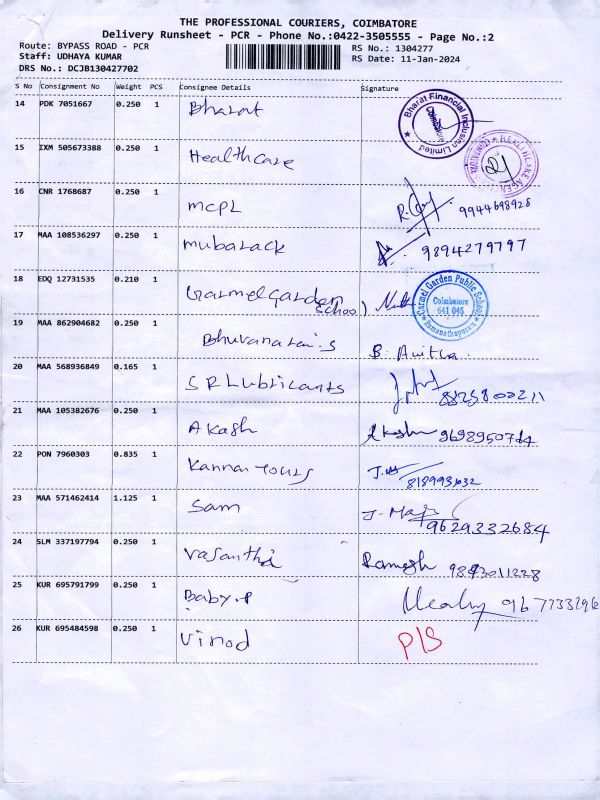 THE PROFESSIONAL COURIERS, COIMBATORE
Delivery Runsheet - PCR - Phone No.:0422-3505555 - Page No.:2
Route: BYPASS ROAD - PCR
Staff: UDHAYA KUMAR
DRS No.: DCJB130427702
RS No.: 1304277
RS Date: 11-Jan-2024
S No Consignment No Weight PCS Consignee Details Signature
14 PDK 7051667 0.250 1 Bharat Bharat Financial Inclusion Limited
15 IXM 505673388 0.250 1 Healthcare
16 CNR 1768687 0.250 1 MCPL 9944698928
17 MAA 108536297 0.250 1 Mubarack 9894279797
18 EDQ 12731535 0.210 1 Carmel Garden School Carmel Garden Public School Coimbatore 641 045 Ramanathapuram
19 MAA 862904682 0.250 1 B. Anitha
20 MAA 568936849 0.165 1 SR Lubricants
21 MAA 105382676 0.250 1 Akash Akash
22 PON 7960303 0.835 1 Kannan Tours
23 MAA 571462414 1.125 1 Sam 9629332684
24 SLM 337197794 0.250 1 Vasantha Ramesh
25 KUR 695791799 0.250 1 Baby.P
26 KUR 695484598 0.250 1 Vinod P/S